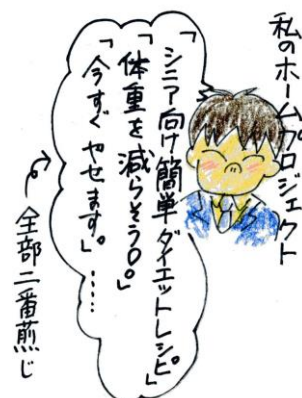 私のホームプロジェクト
「シニア向け簡単ダイエットレシピ」
「体重を減らそう○。」
「今すぐやせます。」……
全部二番煎じ